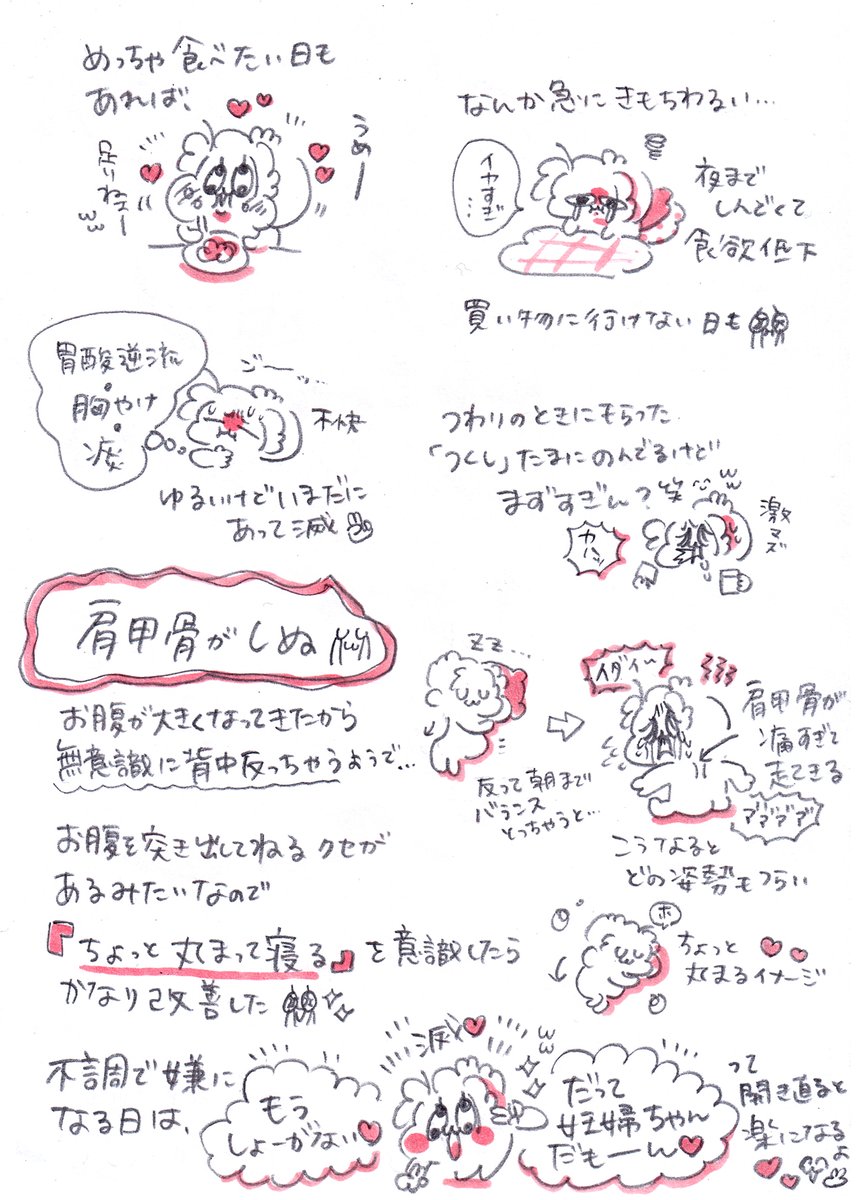 めっちゃ食べたい日も
あれば、
うめー
足りねえー
ww
なんか急にきもちわるい…
イヤすぎ…
夜まで
しんどくて
食欲低下
買い物に行けない日も
胃酸逆流
胸やけ
痰
ジーッ…
不快
ゆるいけどいまだに
あって滅
つわりのときにもらった
「つくし」たまにのんでるけど
まずすぎん？笑
ww
激マズ
カハッ
肩甲骨がしぬ
お腹が大きくなってきたから
無意識に背中反っちゃうようで…
ZZ…
反って朝まで
バランス
とっちゃうと…
イダイ〜
肩甲骨が
痛すぎて
起きてくる
アアアアア
こうなると
どの姿勢もつらい
お腹を突き出してねるクセが
あるみたいなので
『ちょっと丸まって寝る』を意識したら
かなり改善した
ホ
ちょっと
丸まるイメージ
不調で嫌に
なる日は、
もう
しょーがない
滅
ww
だって
妊婦ちゃん
だもーん
って
開き直ると
楽になるよ